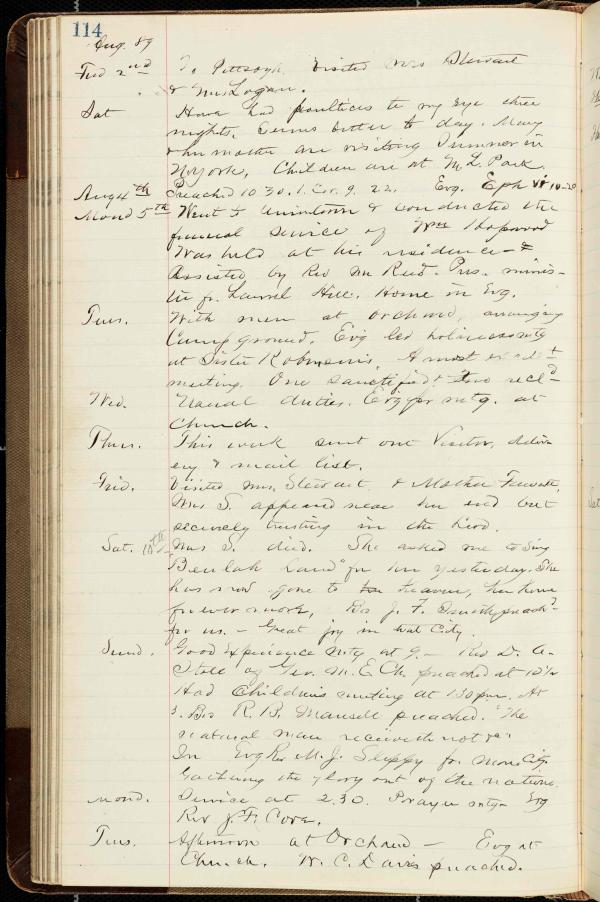 114
Aug. 89
Frid 2nd To Pittsbgh. Visited Mrs Stewart
& Mrs Logan.
Sat Have had poultices to my eye three
nights. Seems better to day. Mary
& her mother are visiting Sumner in
N. York, Children are at M. L. Park.
Aug 4th Preached 10.30. 1. Cor. 9. 22. Evg. Eph VI 10-20
Mond 5th Went to Uniontown & conducted the
funeral service of Wm Hopwood
Was held at his residence - &
Assisted by Rev Mr Reed. Pres. minis-
ter fr. Laurel Hill. Home in Evg.
Tues. With men at Orchard, arranging
Camp ground. Evg led holiness mtg
at Sister Robinson's. A most
meeting. One sanctified & two recld
Wed. Usual duties. Evg pr mtg. at
Church.
Thur. This week sent out Visitor, deliv
ery & mail list.
Frid. Visited Mrs. Stewart & Mother
Mrs S. appeared near her end but
securely trusting in the Lord.
Sat. 10th Mrs S. died. She asked me to sing
"Beulah Land" for her yesterday. She
has now gone to Heaven, her home
forever more. Bro J. F. preachd
for us. - Great joy in that City.
Sund. Good Experience mtg at 9. - Rev D. C.
of Ger. M. E. Ch. preached at 10½
Had Children's meeting at 1.30 p.m. At
3. Bro R. B. Mansell preached. "The
natural man receiveth not &c"
In Evg Rev M. J. Sleppy fr. Mon City
Gathering the glory out of the nations.
Mond. Service at 2.30. Prayer mtg - Evg
Rev J. F. Core.
Tues. Afternoon at Orchard - Evg at
Church. W. C. Davis preached.